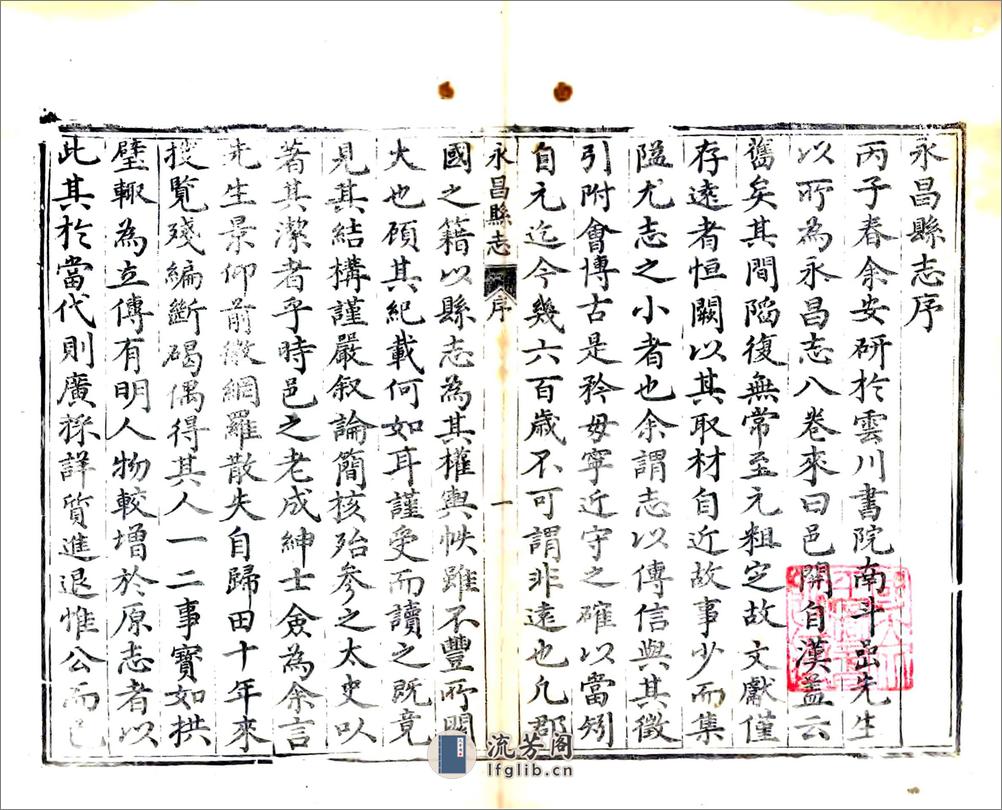 永昌縣志序
丙子春余安研於雲川書院南斗嵒先生
以所為永昌志八卷來曰邑開自漢蓋云
舊矣其間陷復無常至元粗定故文獻僅
存遠者恒闕以其取材自近故事少而集
隘尤志之小者也余謂志以傳信與其徵
引附會博古是矜毋寧近守之確以當例
自元迄今幾六百歲不可謂非遠也凡郡
永昌縣志 序 一
國之籍以縣志為其權輿帙雖不豐所關
大也顧其紀載何如耳謹受而讀之既竟
見其結構謹嚴叙論簡核殆參之太史以
著其潔者乎時邑之老成紳士僉為余言
先生景仰前徽網羅散失自歸田十年來
搜覽殘編斷碣偶得其人一二事寶如拱
璧輙為立傳有明人物較增於原志者以
此其於當代則廣稌詳質進退惟公而已
流芳阁
lfglib.cn